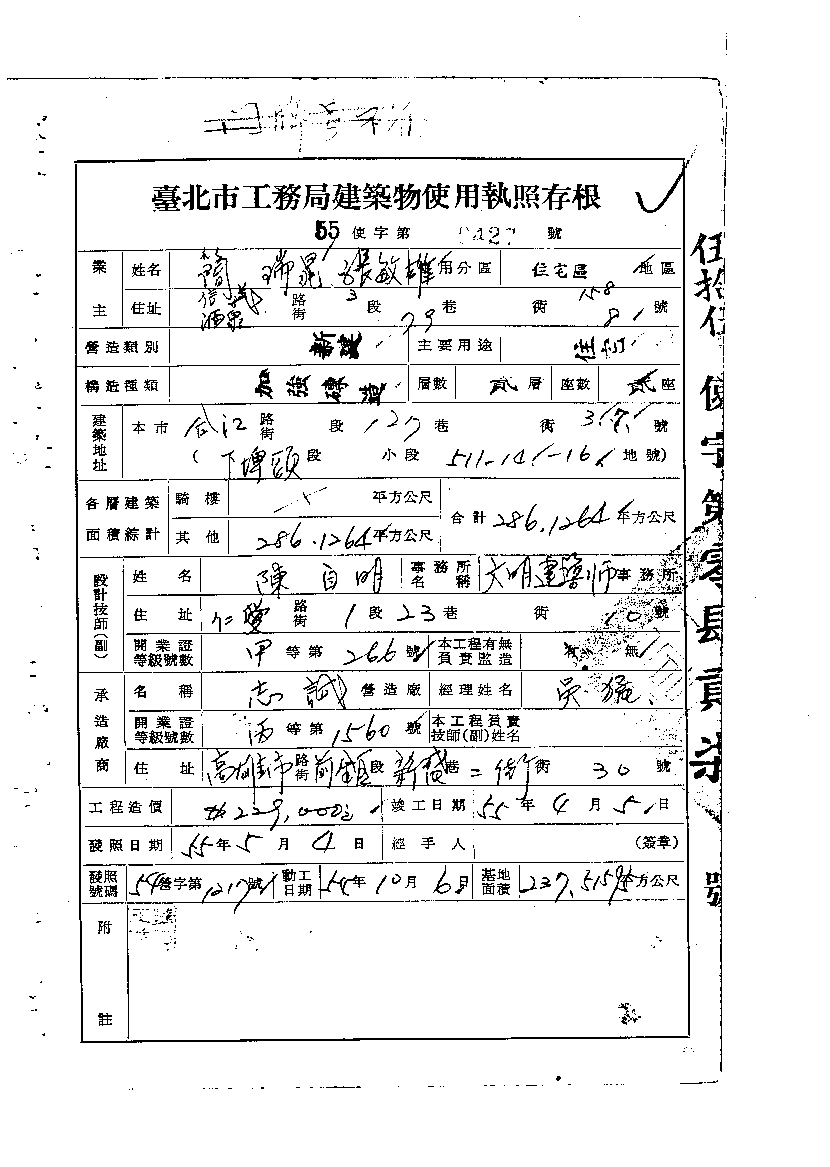 門牌
臺北市工務局建築物使用執照存根
55 使字第 0427 號
業主 姓名 簡瑞晁 張敏雄 用分區 住宅區 地區
住址 信義 酒泉 路街 3 段 79 巷 街 158 81 號
營造類別 新建 主要用途 住宅
構造種類 加強磚造 層數 貳層 座數 貳座
建築地址 本市 合江 路街 段 127 巷 街 3.7. 號
(下埤頭 段 小段 511-14.-16. 地號)
各層建築面積綜計 騎樓 平方公尺 合計 286.1264 平方公尺
其他 286.1264 平方公尺
設計技師(副) 姓名 陳自明 事務所名稱 文明建築師 事務所
住址 仁愛 路街 1 段 23 巷 街 10 號
開業證等級號數 甲等第 266 號 本工程有無負責監造 無
承造廠商 名稱 志誠 營造廠 經理姓名 吳猛
開業證等級號數 丙等第 1560 號 本工程負責技師(副)姓名
住址 高雄市 路街 前鎮區 段 新盛 巷 二街 街 30 號
工程造價 229,000 竣工日期 55年4月5日
發照日期 55年5月4日 經手人 (簽章)
發照號碼 54營字第1217號 動工日期 54年10月6日 基地面積 237.5195平方公尺
附註
伍拾伍 使字第零肆貳柒 號